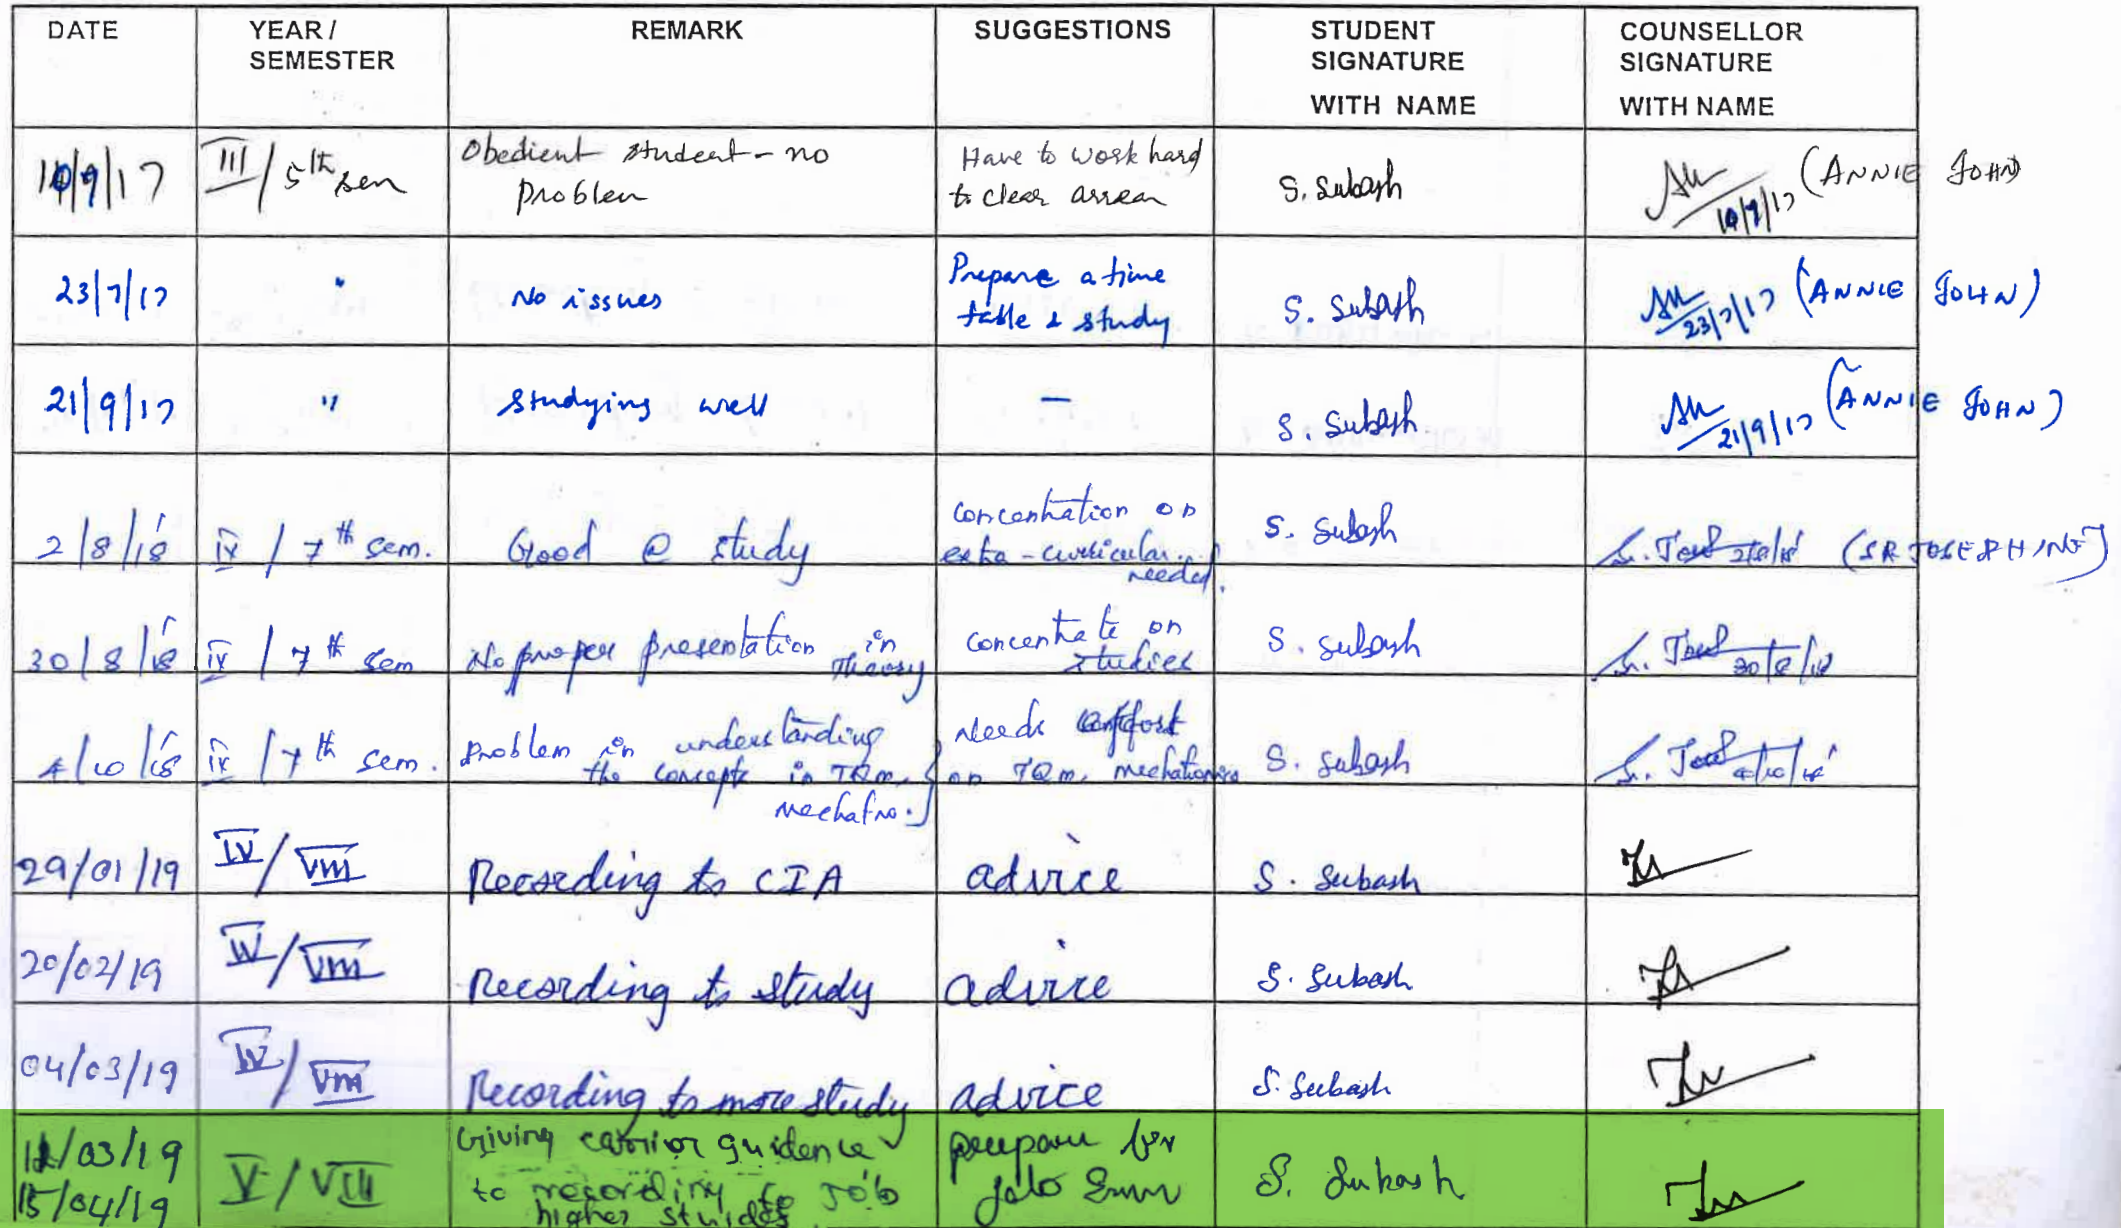 DATE
YEAR /
SEMESTER
REMARK
SUGGESTIONS
STUDENT
SIGNATURE
WITH NAME
COUNSELLOR
SIGNATURE
WITH NAME
10/9/17
III / 5th sem
Obedient student - no
problem
Have to work hard
to clear arrear
S. Subash
(ANNIE JOHN)
23/7/17
"
No issues
Prepare a time
table & study
S. Subash
23/7/17 (ANNIE JOHN)
21/9/17
"
Studying well
—
S. Subash
21/9/17 (ANNIE JOHN)
2/8/18
IV / 7th sem.
Good @ study
concentration on
extra-curricular
needed.
S. Subash
2/8/18 (SR JOSEPHINE)
30/8/18
IV / 7th sem
No proper presentation in
theory
concentrate on
studies
S. Subash
30/8/18
4/10/18
IV / 7th sem.
Problem in understanding
the concepts in TQM,
mechatro.
Needs
on TQM, mechatronics
S. Subash
4/10/18
29/01/19
IV / VIII
Recording to CIA
advice
S. Subash
20/02/19
IV / VIII
Recording to study
advice
S. Subash
04/03/19
IV / VIII
Recording to more study
advice
S. Subash
/03/19
15/04/19
V / VIII
Giving carrior guidence
to recording to Job
higher studies
prepare for
S. Subash